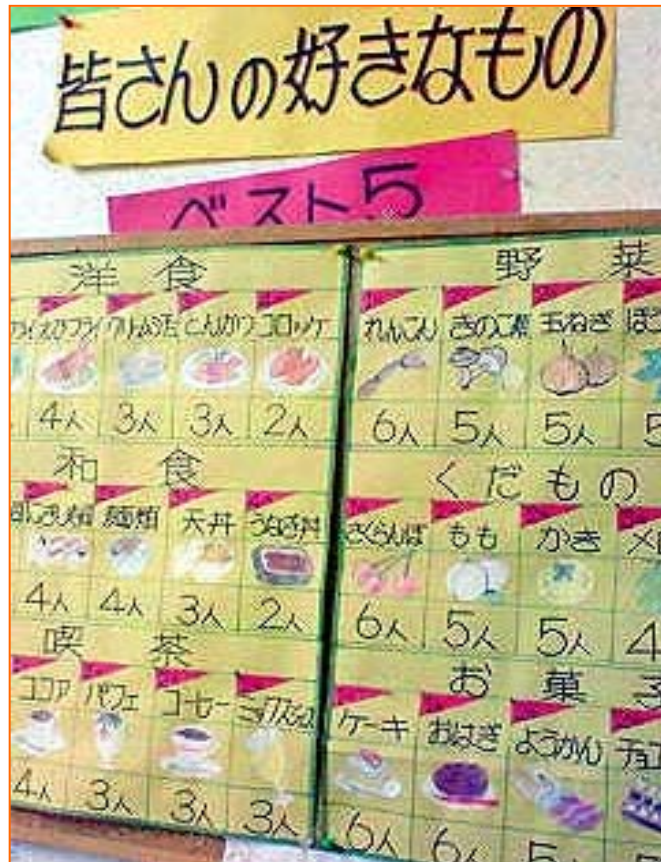 皆さんの好きなもの
ベスト5
洋食
エビフライ クリームシチュー とんかつ コロッケ
4人 3人 3人 2人
和食
麺類 天丼 うなぎ丼
4人 4人 3人 2人
喫茶
ココア パフェ コーヒー ミックスジュース
4人 3人 3人 3人
野菜
れんこん きのこ類 玉ねぎ ほう
6人 5人 5人 5
くだもの
さくらんぼ もも かき メロ
6人 5人 5人 4
お菓子
ケーキ おはぎ ようかん チョコ
6人 6人 5